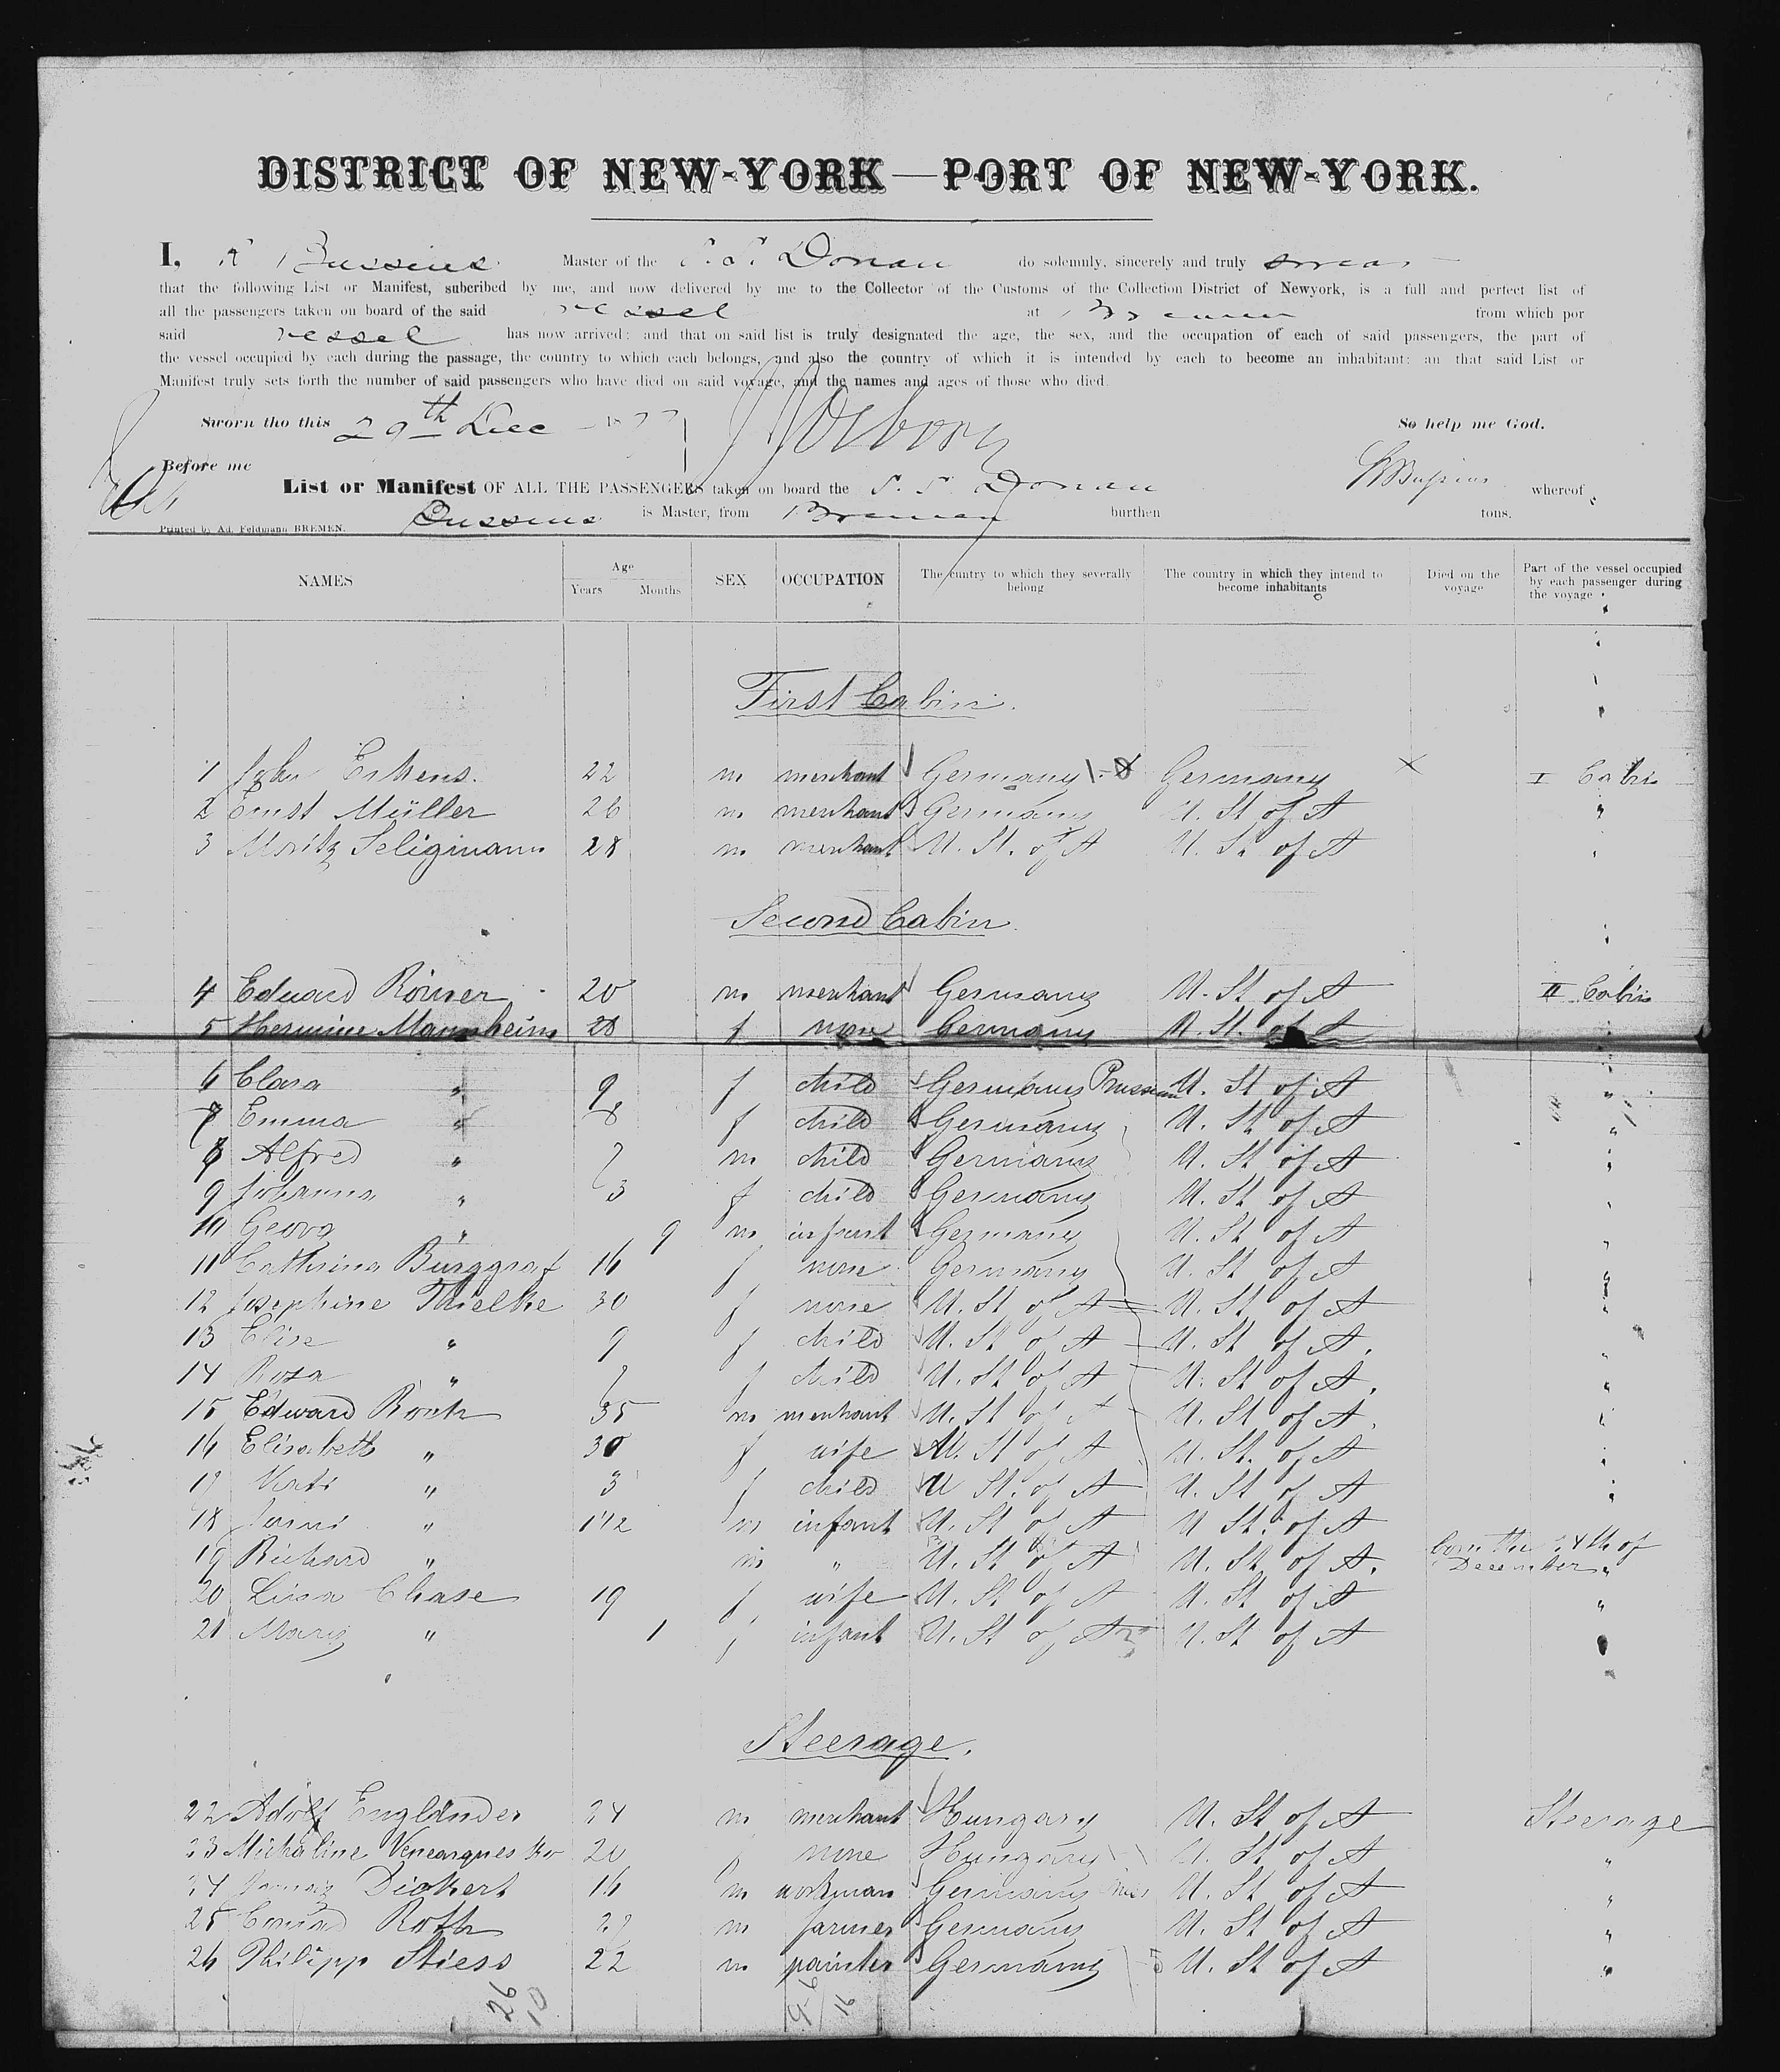 DISTRICT OF NEW-YORK—PORT OF NEW-YORK.
I, Bussius Master of the S. S. Donau do solemnly, sincerely and truly swear
that the following List or Manifest, subcribed by me, and now delivered by me to the Collector of the Customs of the Collection District of Newyork, is a full and perfect list of
all the passengers taken on board of the said vessel at Bremen from which por
said vessel has now arrived: and that on said list is truly designated the age, the sex, and the occupation of each of said passengers, the part of
the vessel occupied by each during the passage, the country to which each belongs, and also the country of which it is intended by each to become an inhabitant: an that said List or
Manifest truly sets forth the number of said passengers who have died on said voyage, and the names and ages of those who died.
Sworn tho this 29th Dec 1877 So help me God.
Before me
List or Manifest OF ALL THE PASSENGERS taken on board the S. S. Donau whereof
Bussius is Master, from Bremen burthen tons.
Printed by Ad. Feldmann BREMEN.
NAMES Age Years Months SEX OCCUPATION The cuntry to which they severally belong The country in which they intend to become inhabitants Died on the voyage Part of the vessel occupied by each passenger during the voyage
First Cabin.
1 John Erkens. 22 m merchant Germany Germany X I Cabin
2 Ernst Müller 26 m merchant Germany U. St of A "
3 Moritz Seligmann 28 m merchant U. St. of A U. St of A "
Second Cabin.
4 Eduard Römer 20 m merchant Germany U. St of A II Cabin
5 Hermine Mannheim 28 f none Germany U. St. of A
6 Clara " 9 f child Germany Prussia U. St of A "
7 Emma " 8 f child Germany U. St of A "
8 Alfred " 7 m child Germany U. St of A "
9 Johanna " 3 f child Germany U. St of A "
10 Georg " 9 m infant Germany U. St of A "
11 Cathrina Burggraf 16 f none Germany U. St of A "
12 Josephine Thielke 30 f none U. St of A U. St of A "
13 Elise " 9 f child U. St of A U. St of A. "
14 Rosa " 7 f child U. St of A U. St of A. "
15 Edward Koch 35 m merchant U. St of A U. St of A. "
16 Elisabeth " 30 f wife U. St of A U. St. of A "
17 " 3 f child U St. of A U. St of A "
18 " m infant U. St of A U St. of A
19 Richard " m " U. St of A U. St of A. born the 24th of December "
20 Luisa Chase 19 f wife U. St of A U. St of A "
21 Mary " 1 f infant U. St of A U. St of A
Steerage.
22 Adolf Engländer 24 m merchant Hungary U. St of A Steerage
23 Michaline 20 f none Hungary U. St of A "
24 Dickert 16 m workman Germany U. St of A "
25 Conrad Roth m farmer Germany U. St of A "
26 Philipp Stiess 22 m painter Germany U. St of A "
26
10